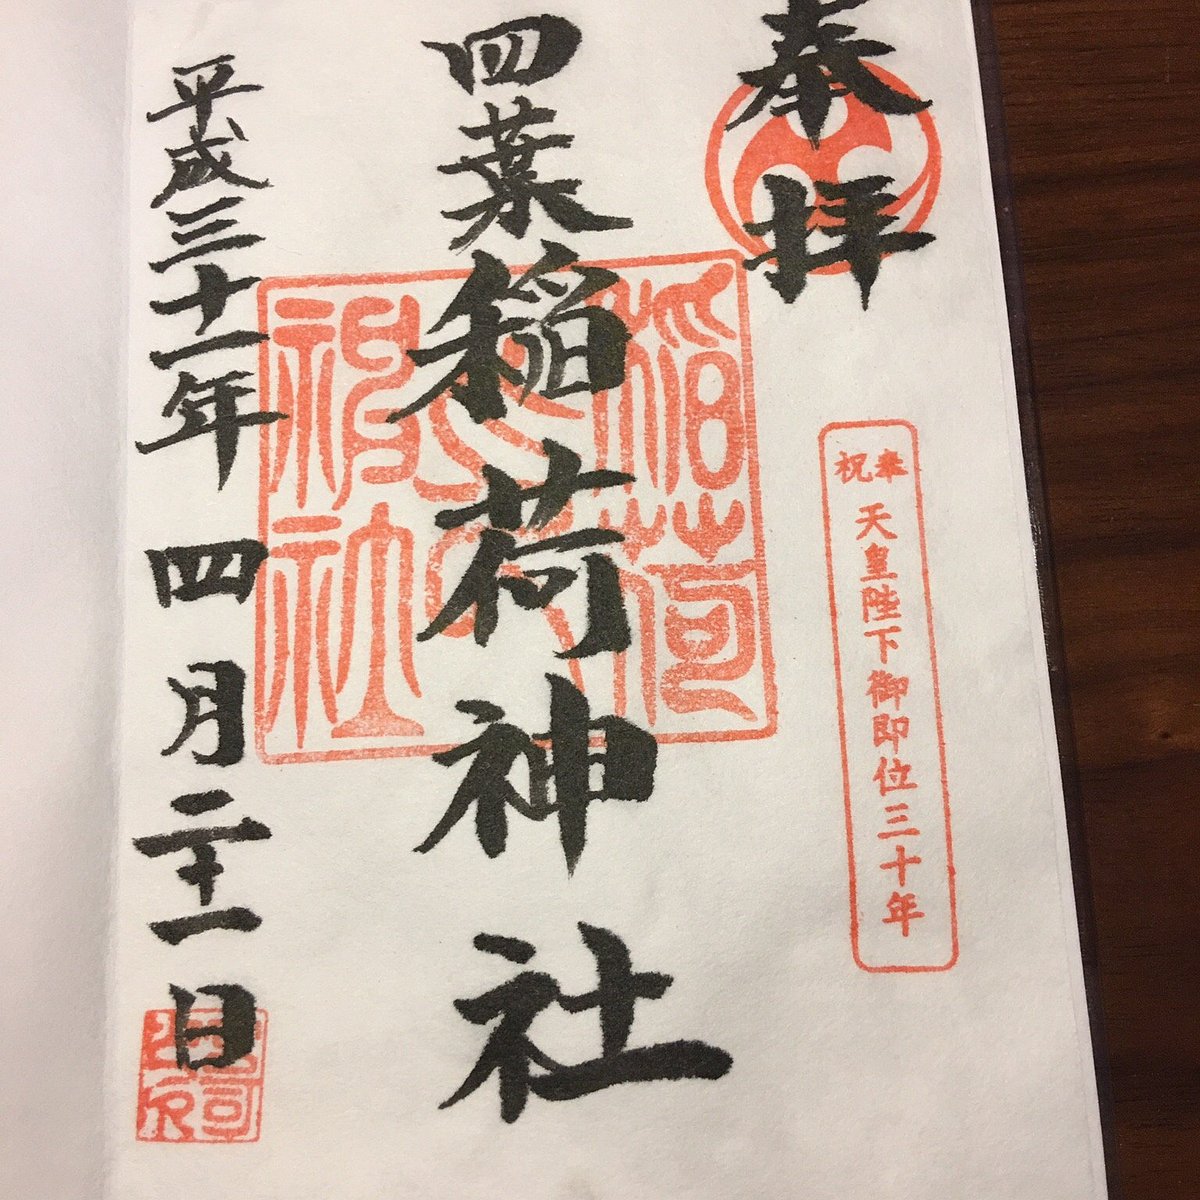 奉拝
奉祝
天皇陛下御即位三十年
四葉稲荷神社
平成三十一年 四月二十一日